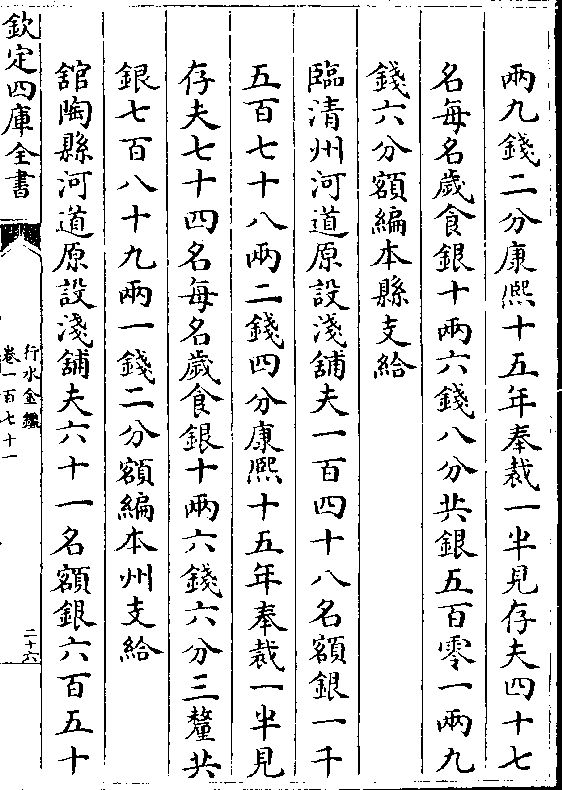 兩九錢二分康熙十五年奉裁一半見存夫四十七
名每名歲食銀十兩六錢八分共銀五百零一兩九
錢六分額編本縣支給
臨清州河道原設淺舖夫一百四十八名額銀一千
五百七十八兩二錢四分康熙十五年奉裁一半見
存夫七十四名每名歲食銀十兩六錢六分三釐共
銀七百八十九兩一錢二分額編本州支給
舘陶縣河道原設淺舖夫六十一名額銀六百五十
欽定四庫全書
行水金鑑
卷一百七十一
二十六